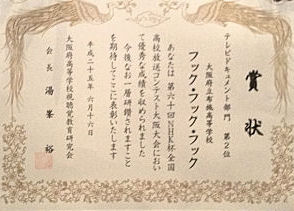 賞状
テレビドキュメント部門 第2位
大阪府立布施高等学校
フック・フック・フック
あなたは第六十回NHK杯全国
高校放送コンテスト大阪大会におい
て優秀な成績を収められました
今後なお一層研鑽されますこと
を期待してここに表彰いたします
平成二十五年 六月十六日
大阪府高等学校視聴覚教育研究会
会長 湯峯 裕